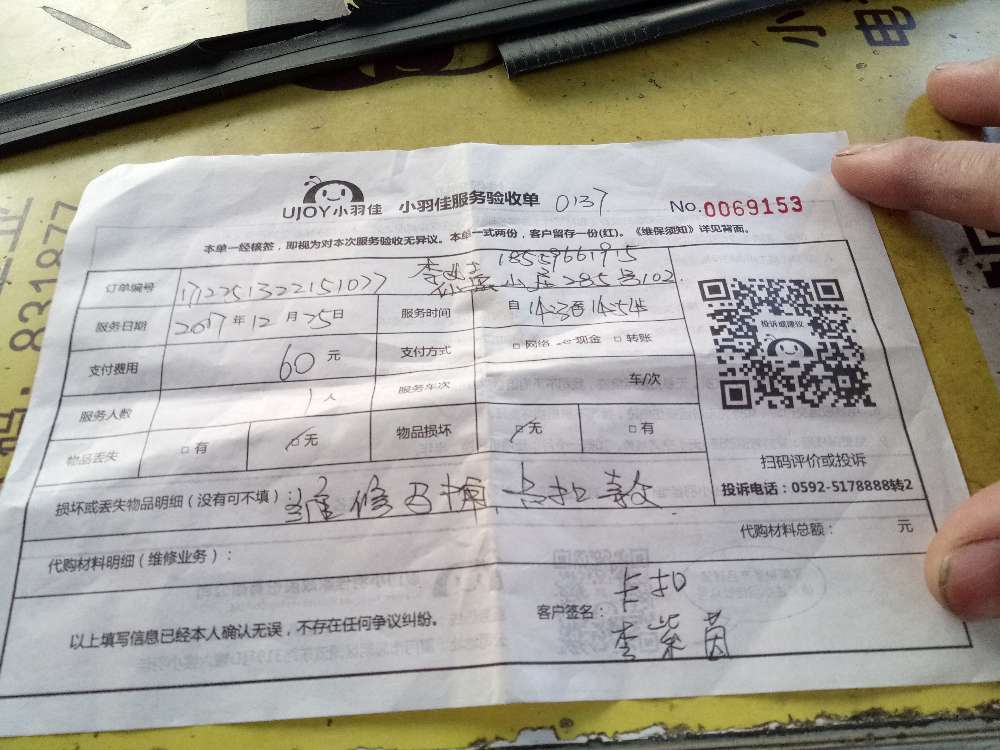 小
电
83187
UJOY小羽佳 小羽佳服务验收单 0137 No.0069153
本单一经核签，即视为对本次服务验收无异议。本单一式两份，客户留存一份(红)。《维保须知》详见背面。
18559661915
285号102
订单编号 1712251322151077
服务日期 2017年12月25日 服务时间 自14:23至14:54
投诉或建议
支付费用 60元 支付方式 □网络 □现金 □转账
服务人数 1人 服务车次 车/次
物品丢失 □有 □无 物品损坏 □无 □有
扫码评价或投诉
损坏或丢失物品明细（没有可不填）：维修马桶，卡扣
投诉电话：0592-5178888转2
代购材料明细（维修业务）： 代购材料总额： 元
卡扣
以上填写信息已经本人确认无误，不存在任何争议纠纷。 客户签名：
李紫茵